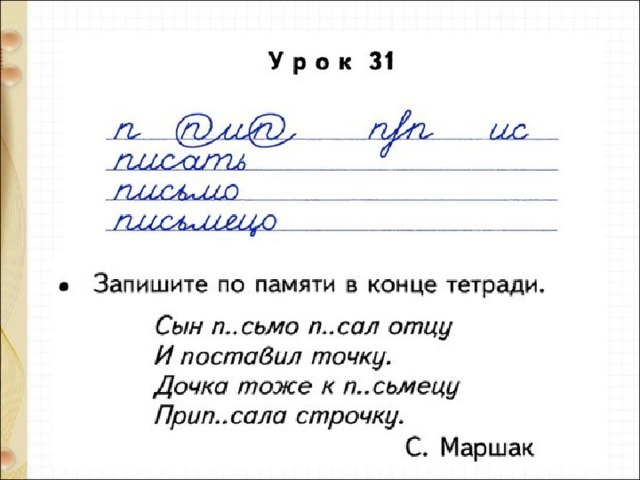 Урок 31
п п и п п/п ис
писать
письмо
письмецо
• Запишите по памяти в конце тетради.
Сын п..сьмо п..сал отцу
И поставил точку.
Дочка тоже к п..сьмецу
Прип..сала строчку.
С. Маршак